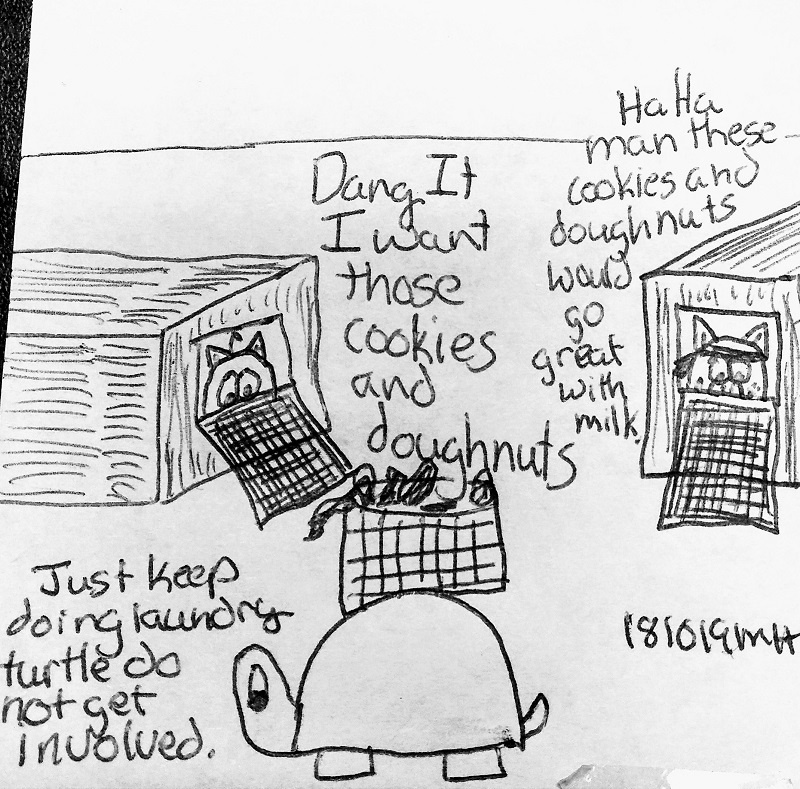 Dang It
I want
those
cookies
and
doughnuts
HaHa
man these
cookies and
doughnuts
would
go
great
with
milk.
Just keep
doing laundry
turtle do
not get
involved.
181019MH